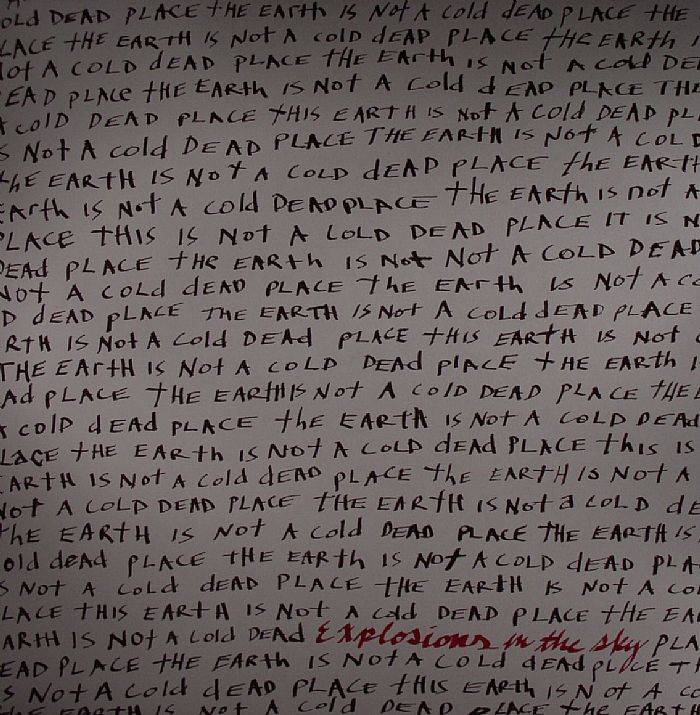 OLD DEAD PLACE tHE EARth IS Not A Cold DEAD PLACE tHE
LACE tHE EARth IS Not A cold dEAD PLACE tHE EARth I
Not A COLD DEAD PLACE tHE EARth IS Not A Cold DE
EAD PLACE tHE EARth IS Not A Cold dEAD PLACE THE
A COLD DEAD PLACE tHIS EARTH IS Not A COld DEAD PL
S Not A cold DEAD PLACE THE EARTH IS NOt A COLD
tHE EARTH IS NOT A COLD dEAD PLACE tHE EARTH
EARth IS Not A cold DEAD PLACE tHE EARth is not A
PLACE tHIS IS Not A COLD DEAD PLACE IT IS N
DEAd PLACE tHE EARth IS Not Not A COLD DEAD
NOT A COLd dEAD PLACE tHE EARth IS Not A CO
D dEAD PLACE THE EARTH IS Not A COLd dEAD PLACE
RTH IS Not A Cold DEAd PLACE tHIS EARTH IS Not
THE EARtH IS Not A COLD DEAd PlACE tHE EARth I
Ad PLACE tHE EARtH IS Not A COlD DEAD PLACE tHE E
A COlD dEAd PLACE thE EARtH IS Not A COLD DEAd
LACE tHE EARth IS Not A COLD dEAd PLACE this IS
EARTH IS Not A cold dEAD PLACE thE EARTH IS Not A
Not A COLD DEAD PLACE tHE EARTH IS Not a COLD dE
tHE EARTH IS Not A Cold DEAD PLACE THE EARTH IS
old dEAD PLACE tHE EARth IS Not A COLD dEAD PLA
S Not A Cold dEAD PLACE tHE EARtH IS Not A Co
LACE tHIS EARtH IS Not A cold DEAD PLACE tHE EA
ARTH IS Not A Cold DEAD Explosions in the sky PLA
EAD PLACE tHE EARth IS Not A COLd dEAd PLACE T
S Not A Cold dEAD PLACE tHIS EARth IS Not A CO
tHE EARTH IS Not A Cold DEAD PLACE tHE EARTH